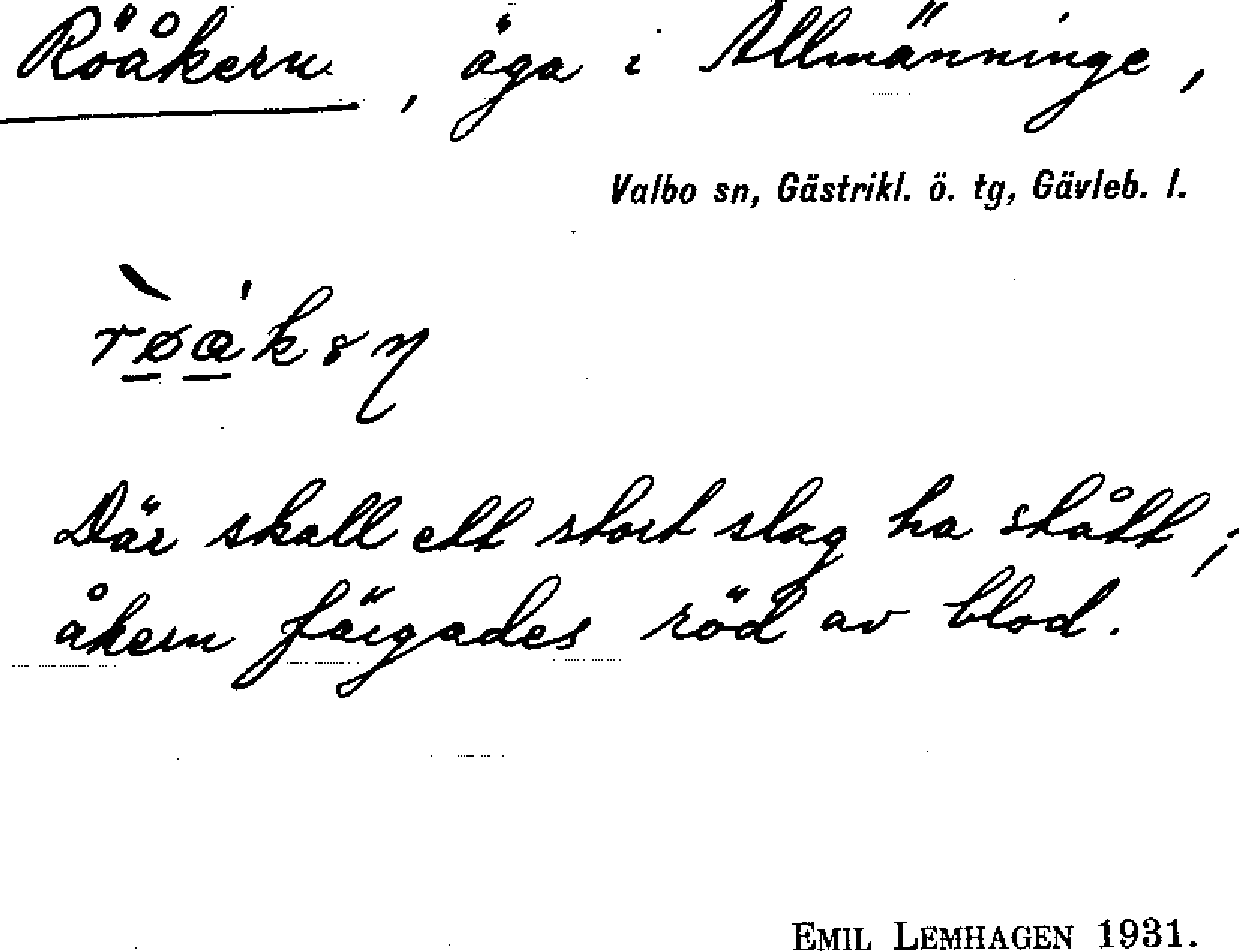 Röåkern, äga i Allmänninge,
Valbo sn, Gästrikl. ö. tg, Gävleb. l.
Där skall ett stort slag ha stått;
åkern färgades röd av blod.
EMIL LEMHAGEN 1931.